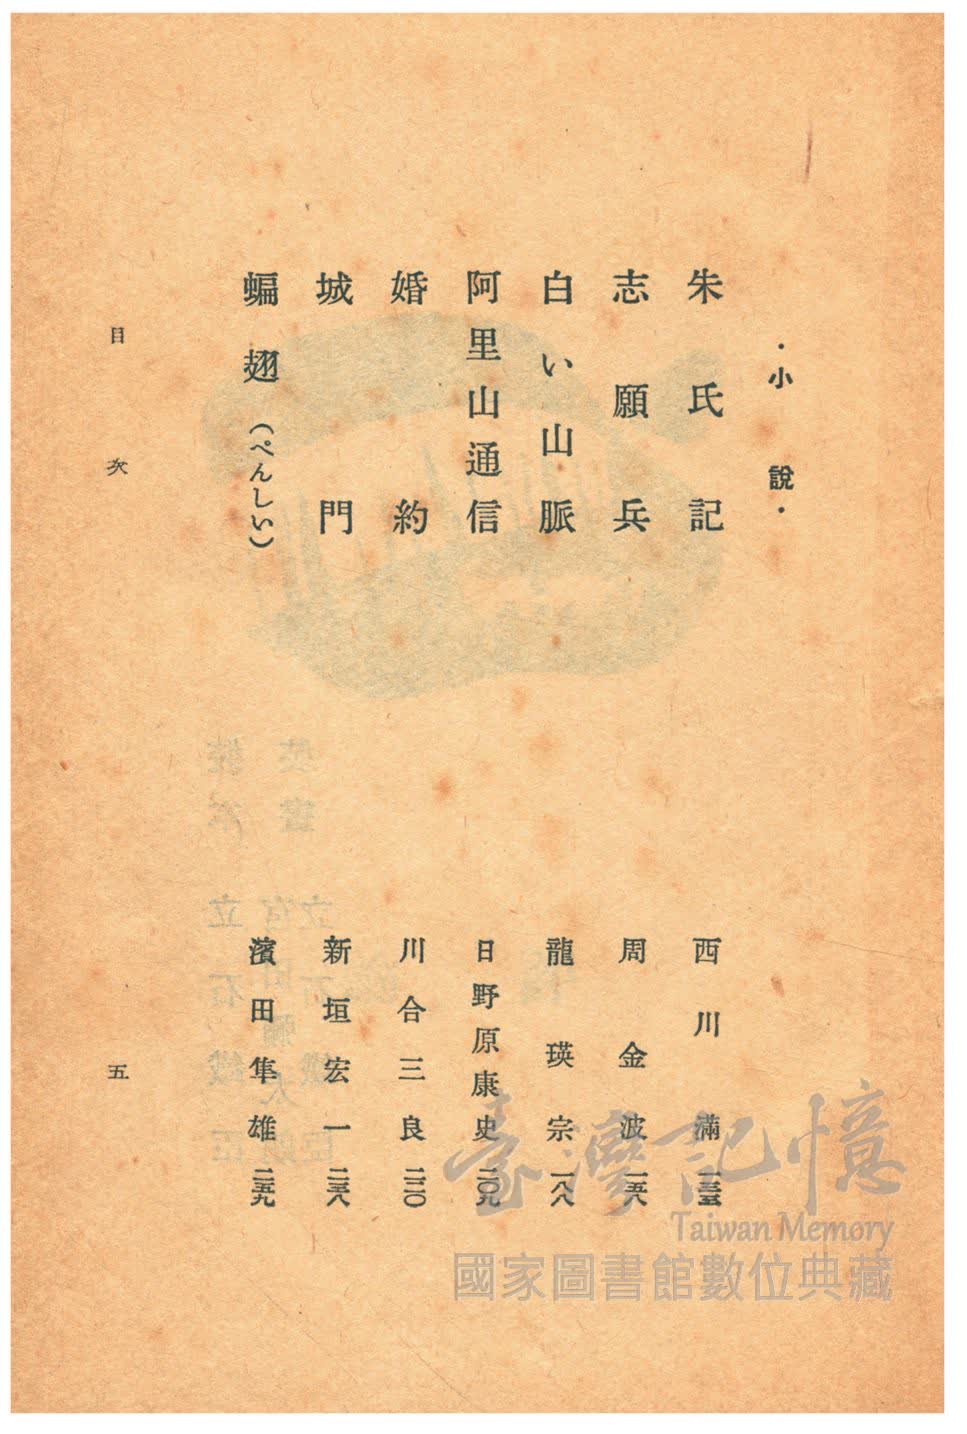 ・小說・
朱氏記 西川滿 一三五
志願兵 周金波 一五八
白い山脈 龍瑛宗 一八八
阿里山通信 日野原康史 二〇九
婚約 川合三良 二二〇
城門 新垣宏一 二三八
蝙翅(ぺんしい) 濱田隼雄 二五九
目次 五
臺灣記憶
Taiwan Memory
國家圖書館數位典藏